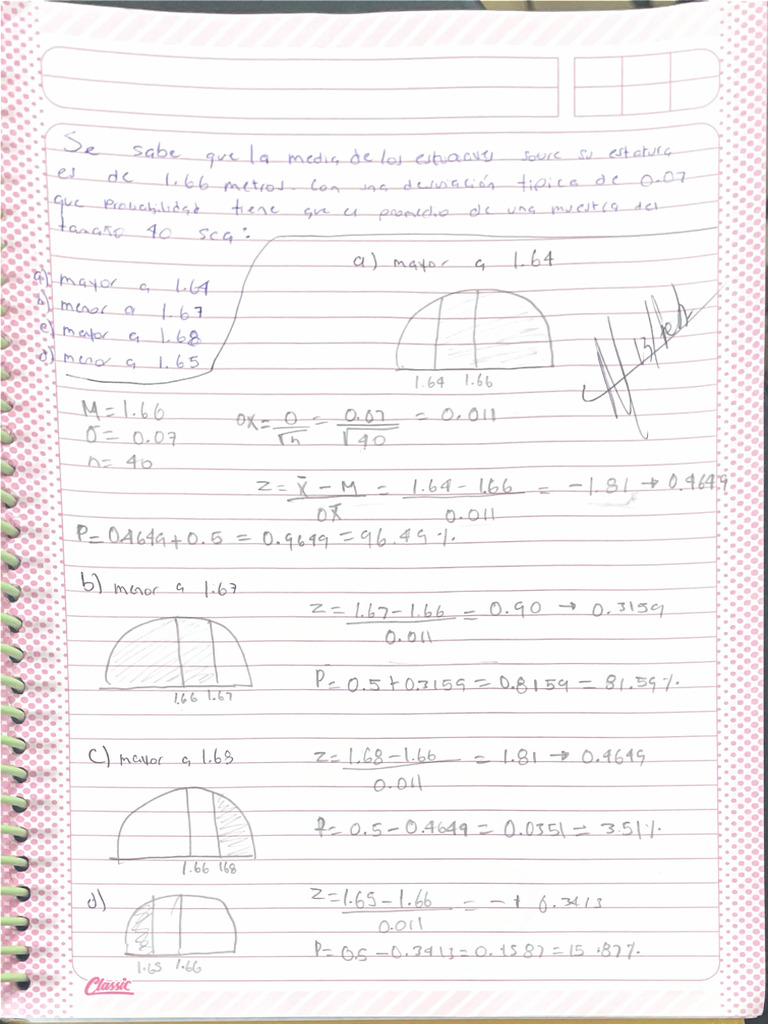 Se sabe que la media de los estuaives sobre su estatura
es de 1.66 metros. Con una desviación tipica de 0.07
que Probabilidad tiene que el promedio de una muestra del
tamaño 40 sea:
a) mayor a 1.64
b) menor a 1.67
c) mayor a 1.68
d) menor a 1.65
a) mayor a 1.64
1.64 1.66
13/feb
M = 1.66
σ = 0.07
n = 40
σx = σ/√n = 0.07/√40 = 0.011
z = (x̄ - M)/σx̄ = (1.64 - 1.66)/0.011 = -1.81 → 0.4649
P = 0.4649 + 0.5 = 0.9649 = 96.49 %.
b) menor a 1.67
1.66 1.67
z = (1.67 - 1.66)/0.011 = 0.90 → 0.3159
P = 0.5 + 0.3159 = 0.8159 = 81.59 %.
c) mayor a 1.68
1.66 168
z = (1.68 - 1.66)/0.011 = 1.81 → 0.4649
P = 0.5 - 0.4649 = 0.0351 = 3.51 %.
d)
1.65 1.66
z = (1.65 - 1.66)/0.011 = -1 0.3413
P = 0.5 - 0.3413 = 0.1587 = 15.87 %.
Classic